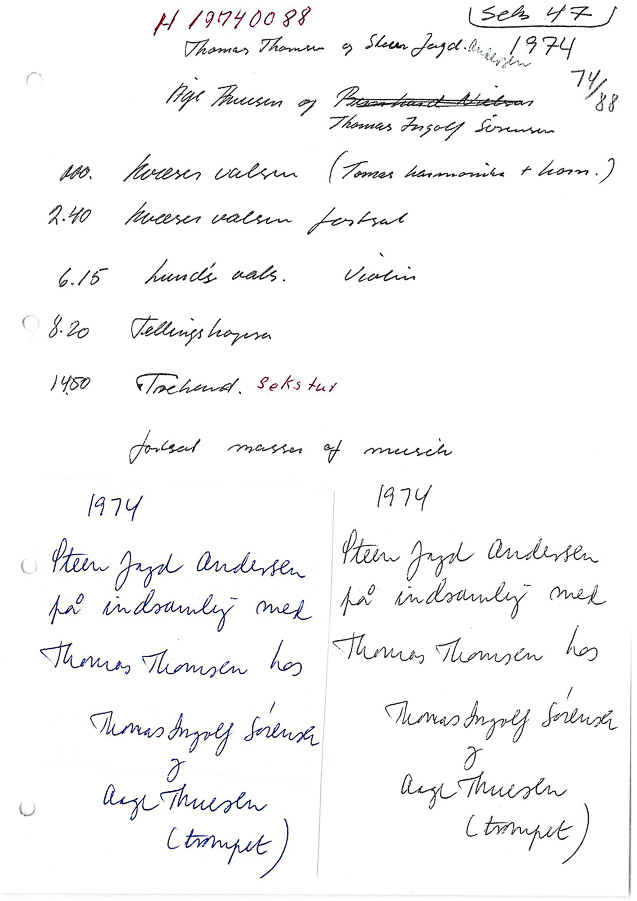 H 19740088
Seks 47
Thomas Thomsen og Steen Jagd. Andersen 1974
74/88
Åge Thuesen og Bernhard Nielsen
Thomas Ingolf Sørensen
000. Kvæser valsen (Tomas harmonika + horn.)
2.40 Kvæser valsen fortsat
6.15 Lund's vals. Violin
8.20
14.50 Trehand. Sekstur
fortsat masser af musik
1974
Steen Jagd Andersen
på indsamling med
Thomas Thomsen hos
Thomas Ingolf Sørensen
og
Aage Thuesen
(trompet)
1974
Steen Jagd Andersen
på indsamling med
Thomas Thomsen hos
Thomas Ingolf Sørensen
og
Aage Thuesen
(trompet)